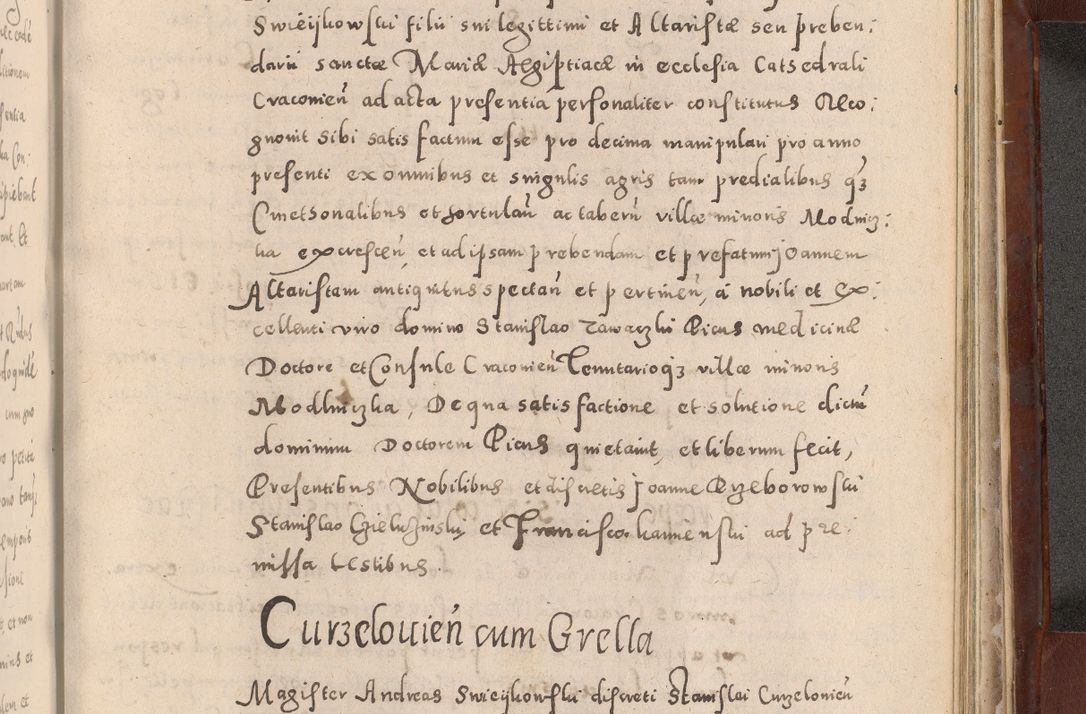 Swieijkowskii filii sui legittimi et Altaristæ seu preben:
darii sanctæ Mariæ Aegiptiacæ in ecclesia Catsedrali
Cracovien̄ ad acta presentia personaliter constitutus Reco:
gnovit sibi satis factum esse pro decima manipulari pro anno
presenti ex omnibus et singulis agris tam predialibus qȝ
Cmetsonalibus et hortulan̄ ac tabern̄ villæ minoris Modlnicz:
ka excrescen̄, et ad ipsam prebendam et prefatum Joannem
Altaristam antiquitus spectan̄ et pertinen̄, a nobili et ex:
cellenti viro domino Stanislao Zawaczki Picus medicinæ
Doctore et Consule Cracovien̄ Tenutarioqȝ villæ minoris
Modlniczka, De qua satisfactione et solutione dictū
dominum Doctorem Picus quietavit, et liberum fecit,
Presentibus Nobilibus et discretis Joanne Rzeborowskii
Stanislao et Francisco ad pre:
missa testibus.
Curzelovien̄ cum Grella
Magister Andreas Swieijkowskii discreti Stanislai Curzelovien̄